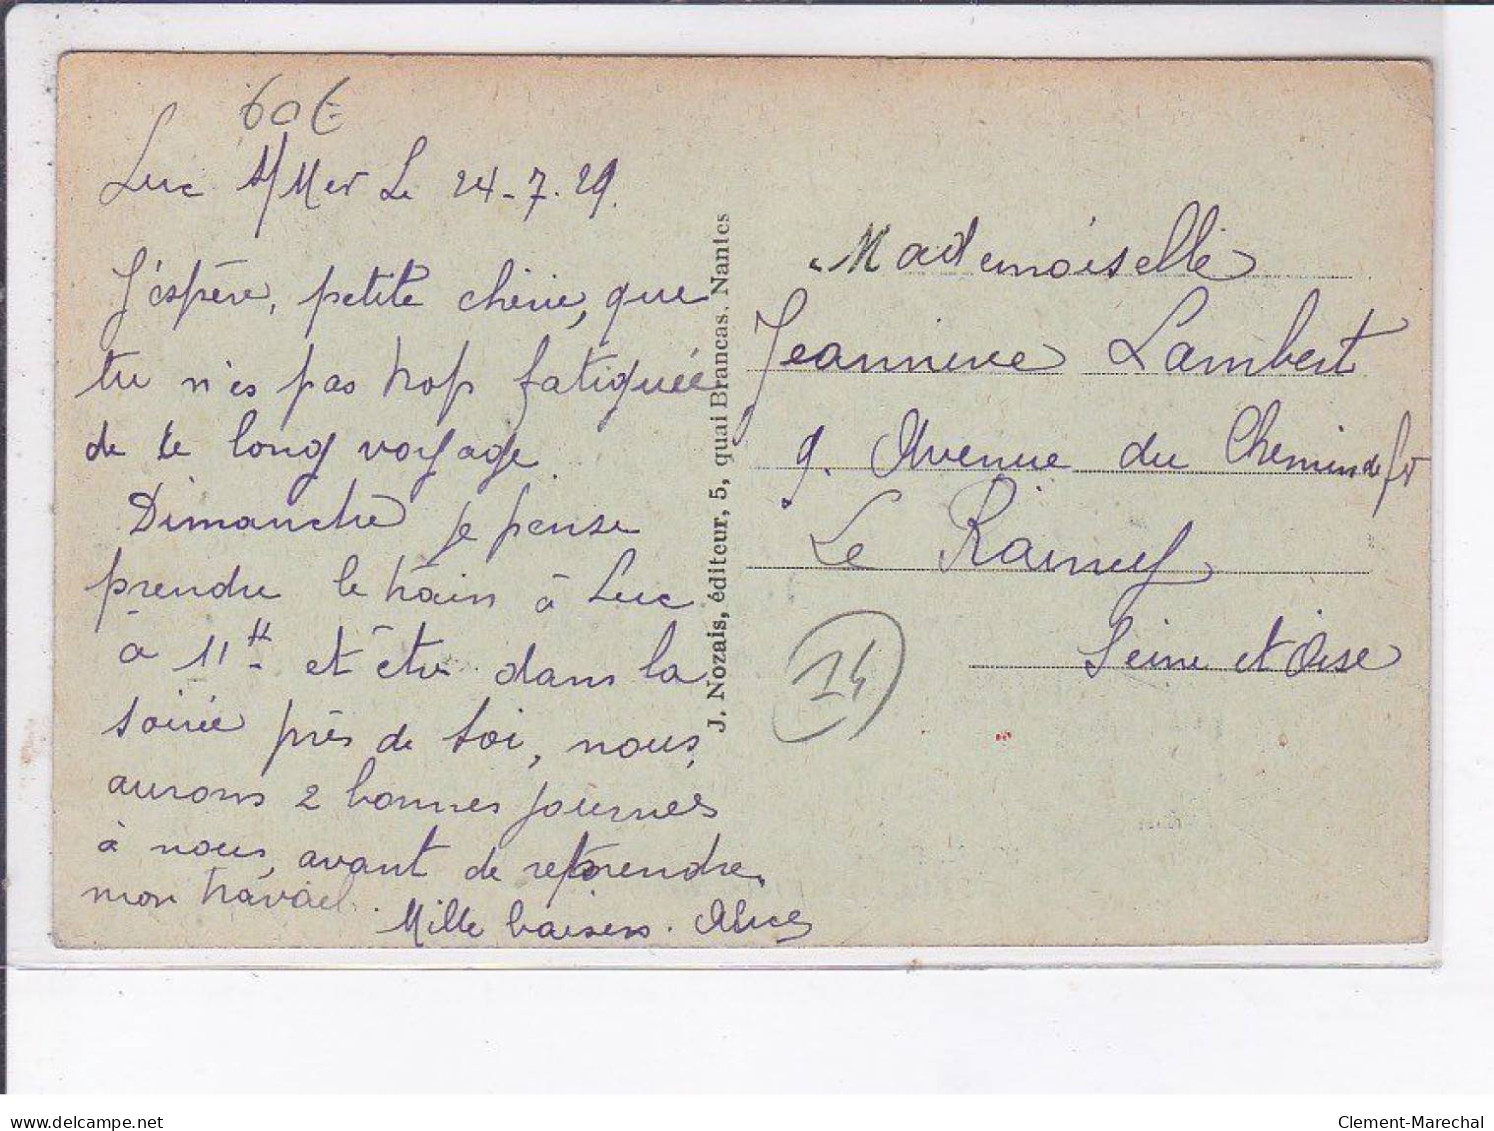 60€
Luc s/Mer Le 24-7.29.
J'espère, petite chérie, que
tu n'es pas trop fatiguée
de ce long voyage.
Dimanche je pense
prendre le train à Luc
à 11H et être dans la
soirée près de toi, nous
aurons 2 bonnes journées
à nous, avant de reprendre
mon travail.
Mille baisers. Alice
J. Nozais, éditeur, 5, quai Brancas. Nantes
Mademoiselle
Jeannine Lambert
9. Avenue du Chemin de fer
Le Raincy
Seine et Oise
14
delcampe.net
Clement-Marechal